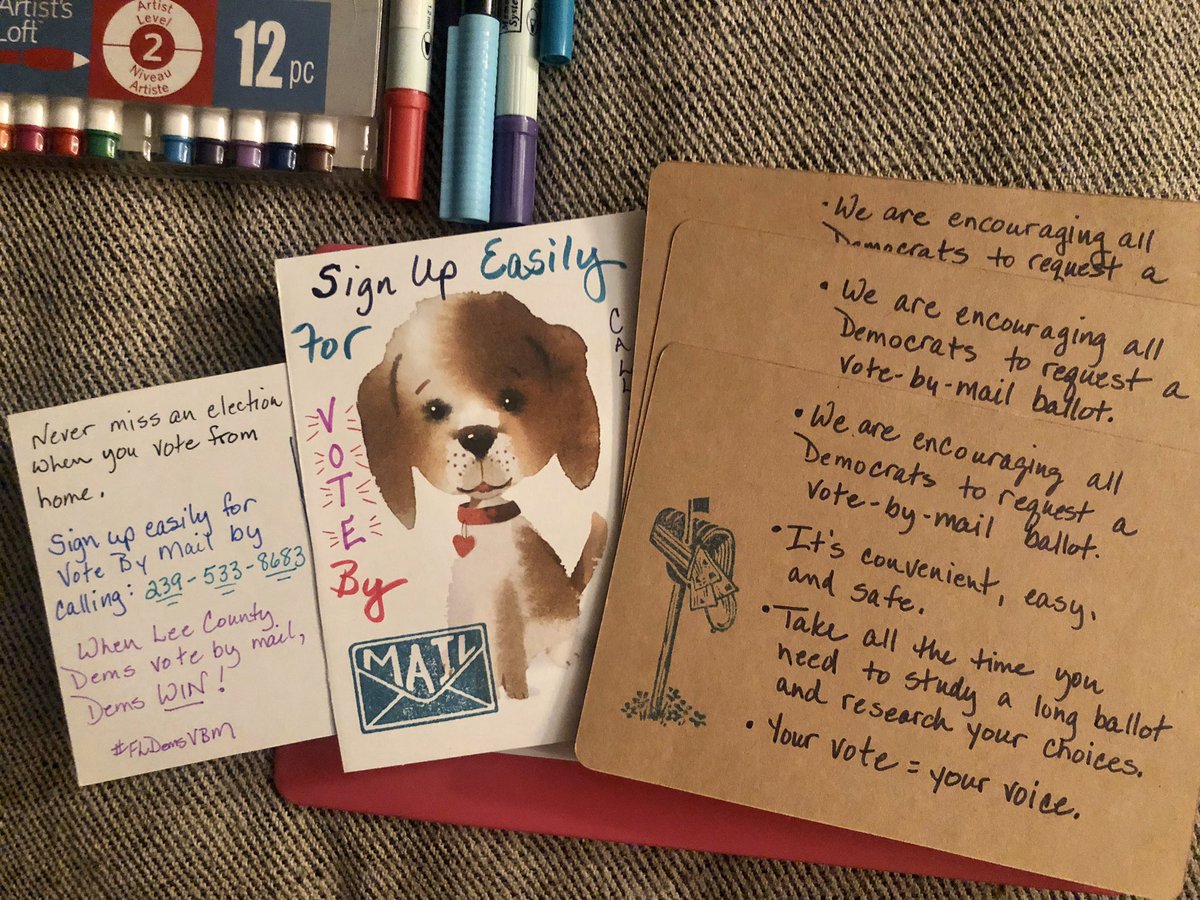 Artist's
Loft
Artist
Level
2
Niveau
Artiste
12 pc
Never miss an election
when you vote from
home.
Sign up easily for
Vote By Mail by
calling: 239-533-8683
When Lee County
Dems vote by mail,
Dems WIN!
#FLDemsVBM
Sign Up Easily
For
VOTE
By
MAIL
CALL
• We are encouraging all
Democrats to request a
• We are encouraging all
Democrats to request a
vote-by-mail ballot.
• We are encouraging all
Democrats to request a
vote-by-mail ballot.
• It's convenient, easy,
and safe.
• Take all the time you
need to study a long ballot
and research your choices.
• Your vote = your voice.